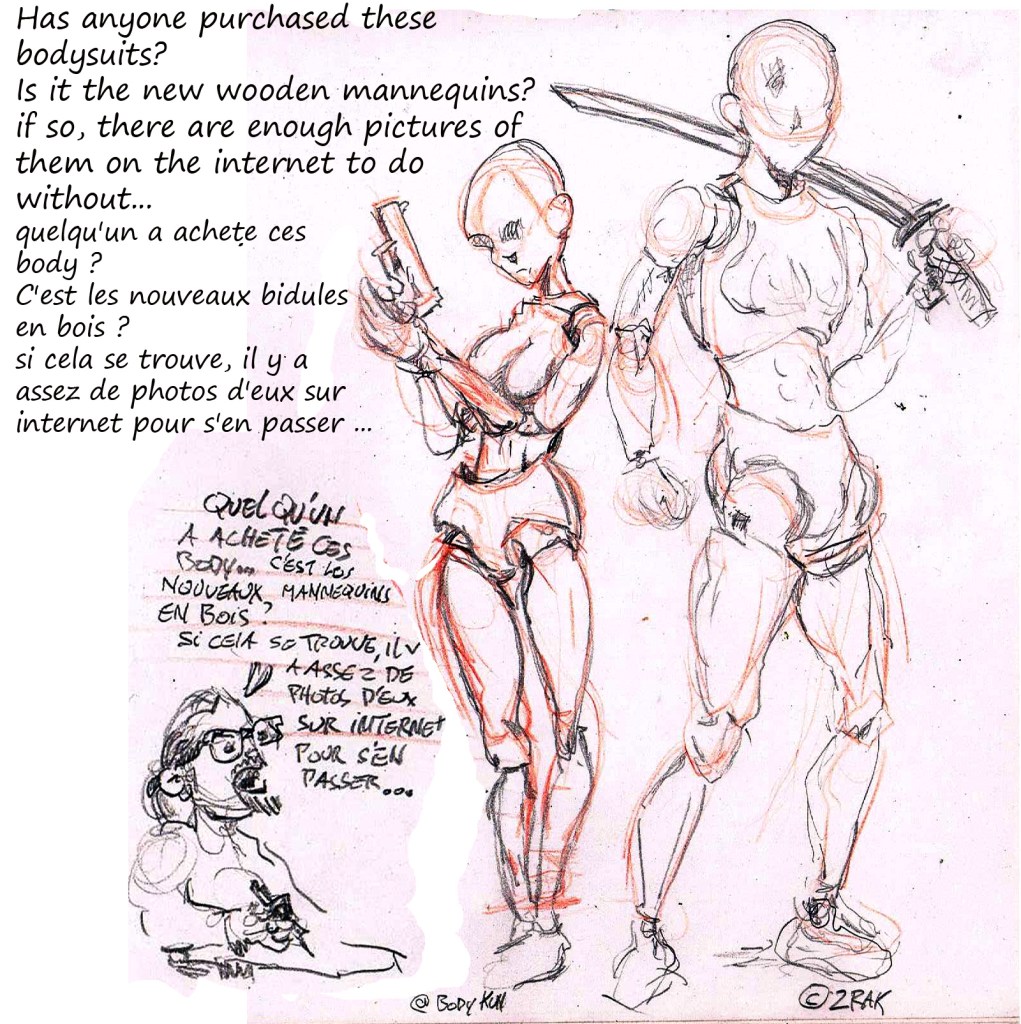 Has anyone purchased these
bodysuits?
Is it the new wooden mannequins?
if so, there are enough pictures of
them on the internet to do
without...
quelqu'un a achete ces
body ?
C'est les nouveaux bidules
en bois ?
si cela se trouve, il y a
assez de photos d'eux sur
internet pour s'en passer ...
QUELQU'UN
A ACHETÉ CES
BODY... C'EST LES
NOUVEAUX MANNEQUINS
EN BOIS ?
Si CELA SE TROUVE, iL Y
A ASSEZ DE
PHOTOS D'EUX
SUR INTERNET
POUR S'EN
PASSER...
@ BODY KUN
© ZRAK